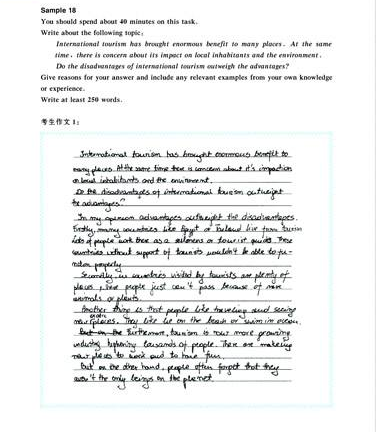 Sample 18
You should spend about 40 minutes on this task.
Write about the following topic:
International tourism has brought enormous benefit to many places. At the same
time, there is concern about its impact on local inhabitants and the environment.
Do the disadvantages of international tourism outweigh the advantages?
Give reasons for your answer and include any relevant examples from your own knowledge
or experience.
Write at least 250 words.
考生作文 1:
International tourism has brought enormous benefit to
many places. At the same time there is concern about it's impaction
on local inhabitants and the enviroment.
Do the disadvantages of international tourism outweight
the advantages?
In my opinion advantages outweight the disadvantages.
Firstly, many countries like Egypt or live from tourism
lots of people work there as a or tourist guids. These
countries without support of tourists wouldn't be able to fu-
nction properly
Secondly, in countries visited by tourists are plenty of
places where people just can't pass because of rare
animals or plants.
Another thing is that people like traveling and seeing
new places. They like lie on the beach or swim in ocean.
Furthermore, tourism is now more growing
people. There are making
new places to work and to have fun.
But on the other hand, people often forget that they
aren't the only beings on the planet.